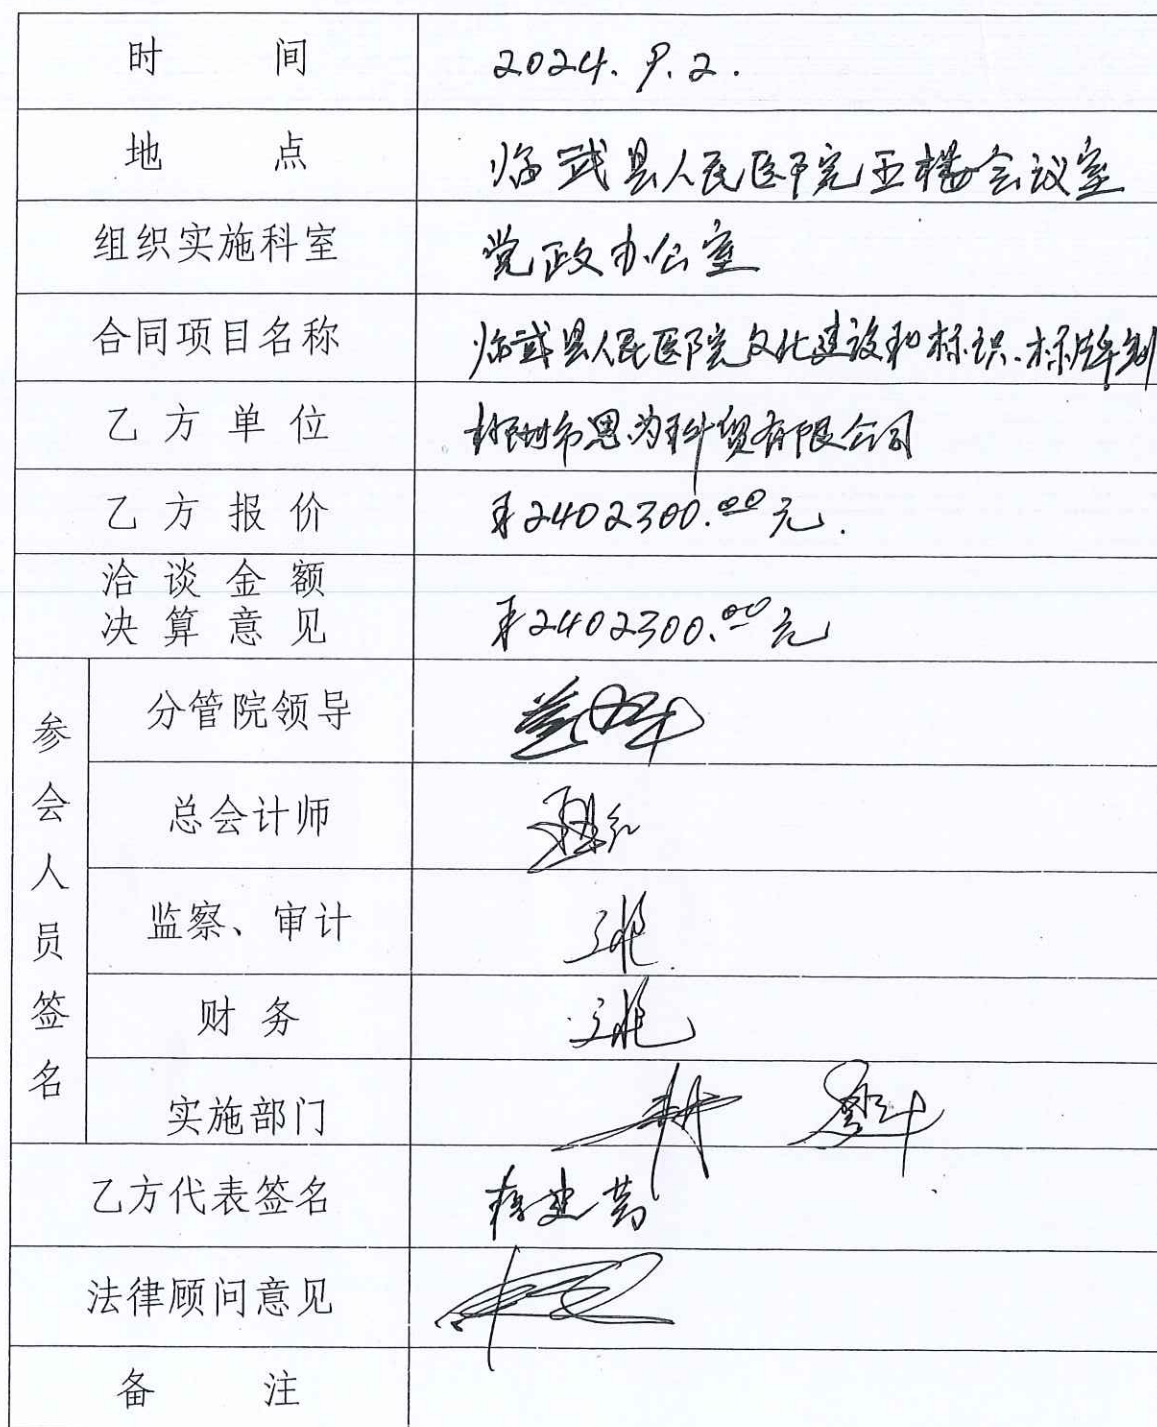 时 间 2024.9.2.
地 点 临武县人民医院五楼会议室
组织实施科室 党政办公室
合同项目名称 临武县人民医院文化建设和标识、标牌制
乙方单位 郴州市思为科贸有限公司
乙方报价 ¥2402300.00元.
洽谈金额
决算意见 ¥2402300.00元
参会人员签名
分管院领导
总会计师
监察、审计
财务
实施部门
乙方代表签名
法律顾问意见
备 注